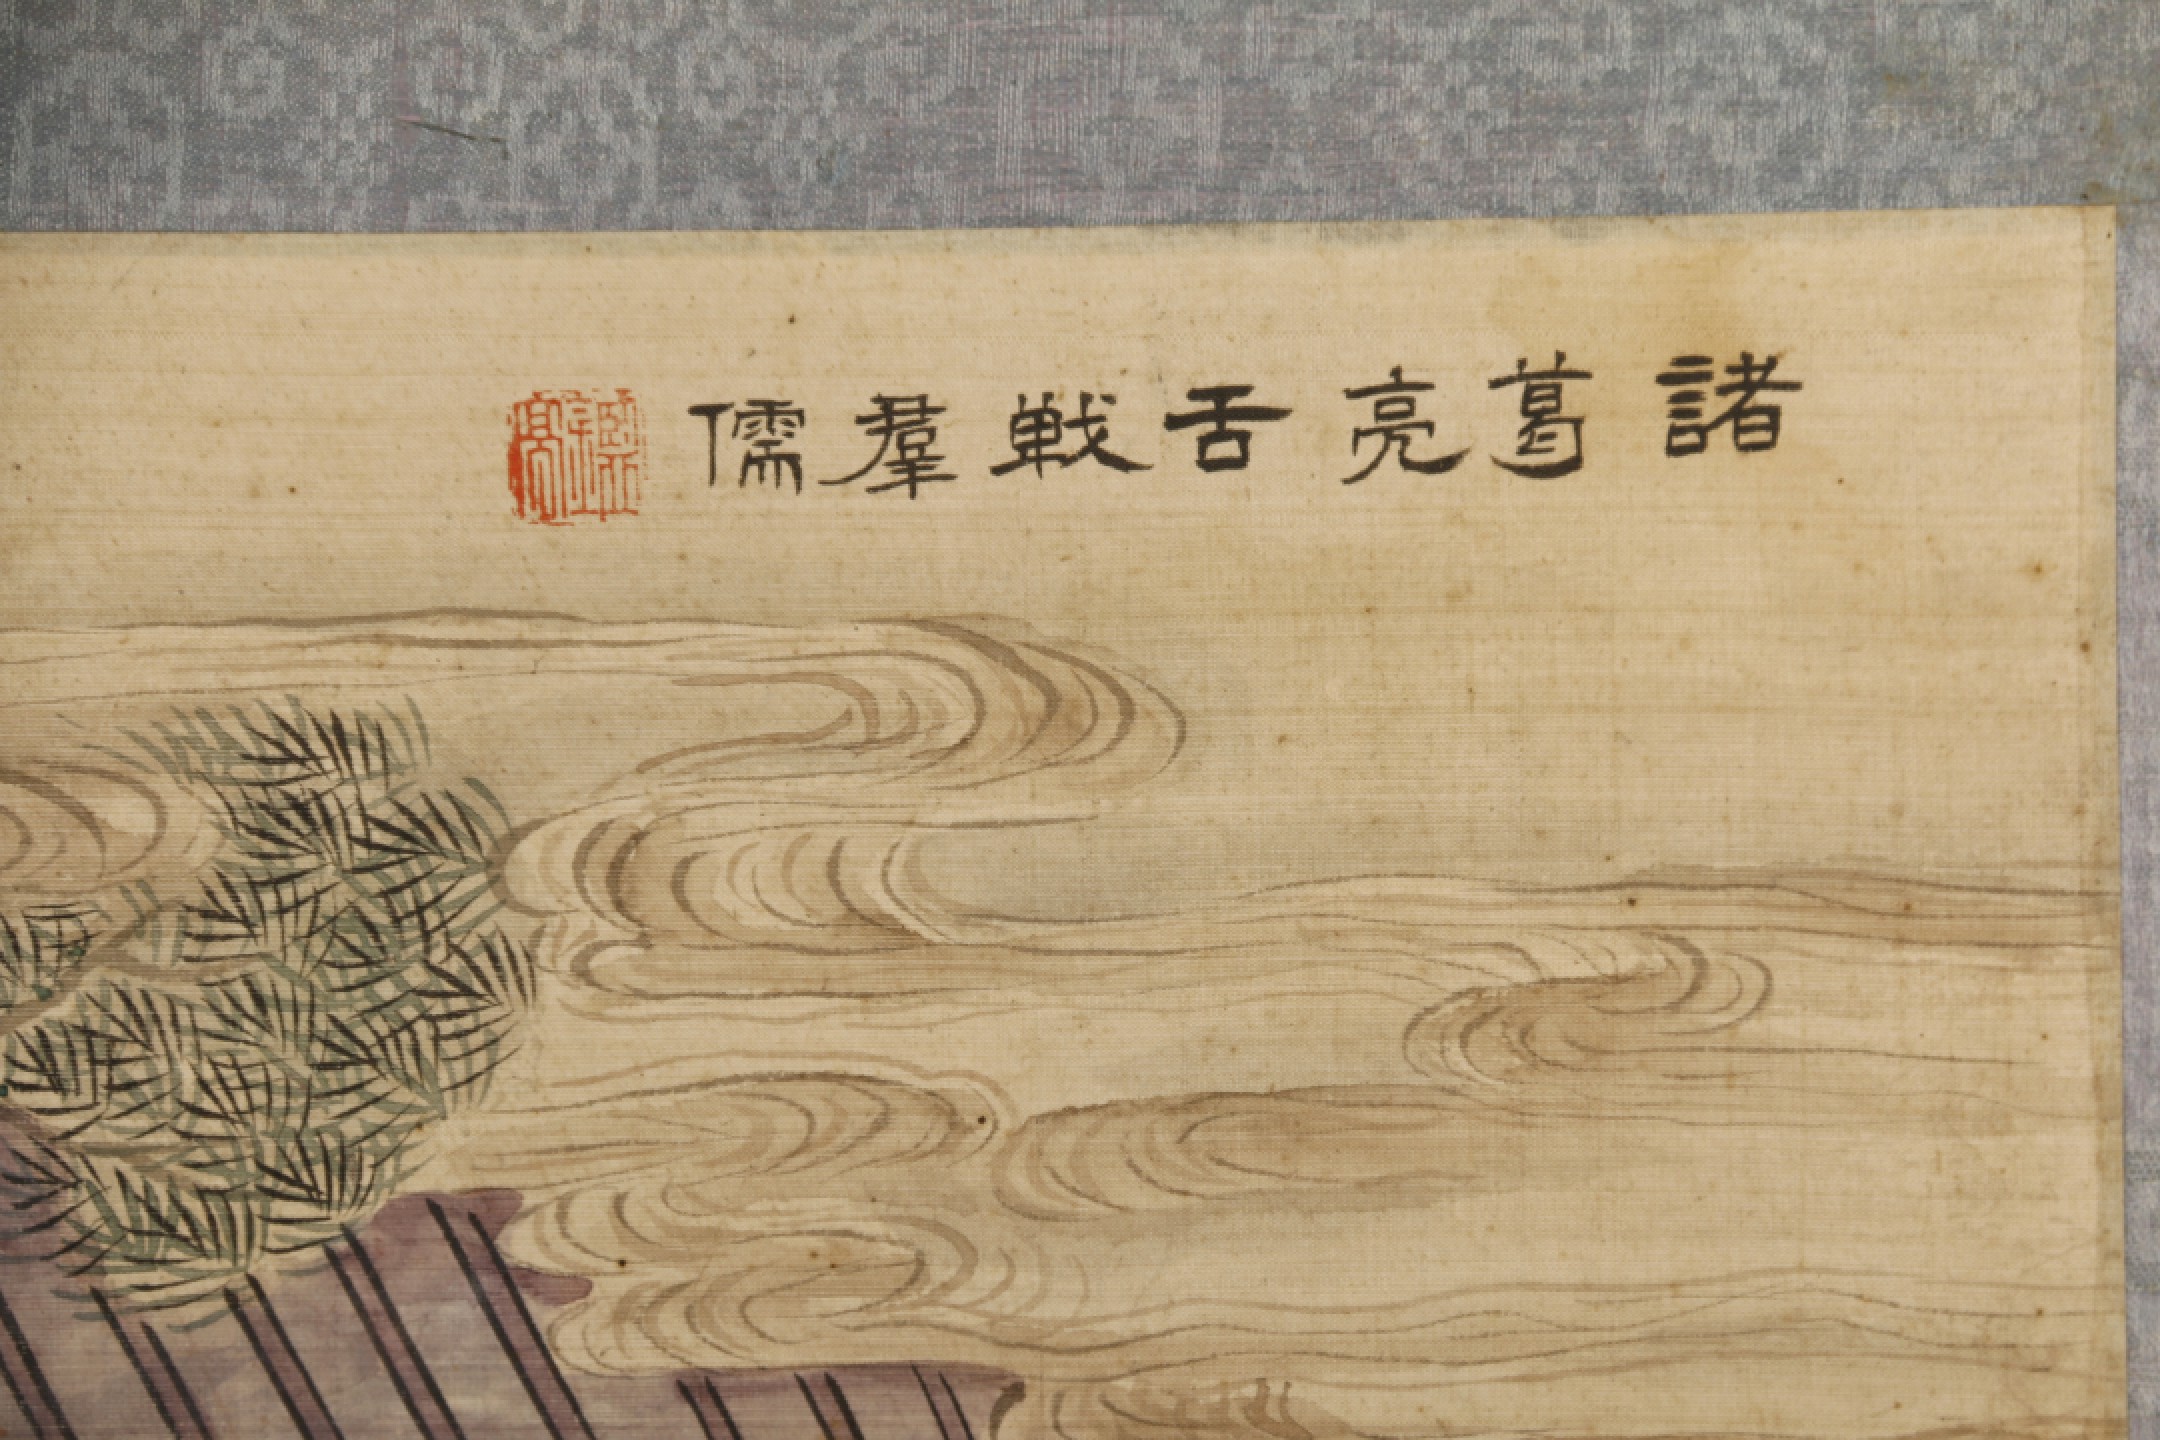 諸葛亮舌戦羣儒